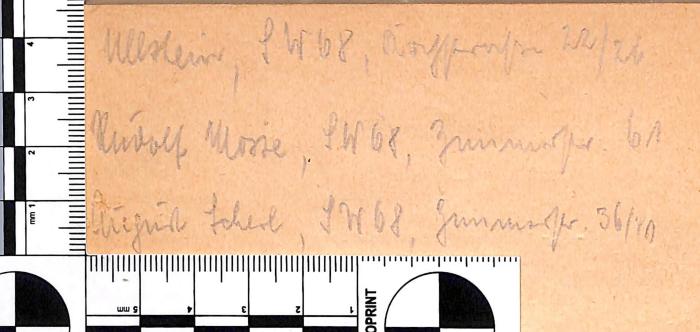 Ullstein, SW 68, Kochstrasse 22/26
Rudolf Mosse, SW 68, Zimmerstr. 61
August Scherl, SW 68, Zimmerstr. 36/40
4
3
2
mm 1
5 mm
4
3
2
1
OPRINT